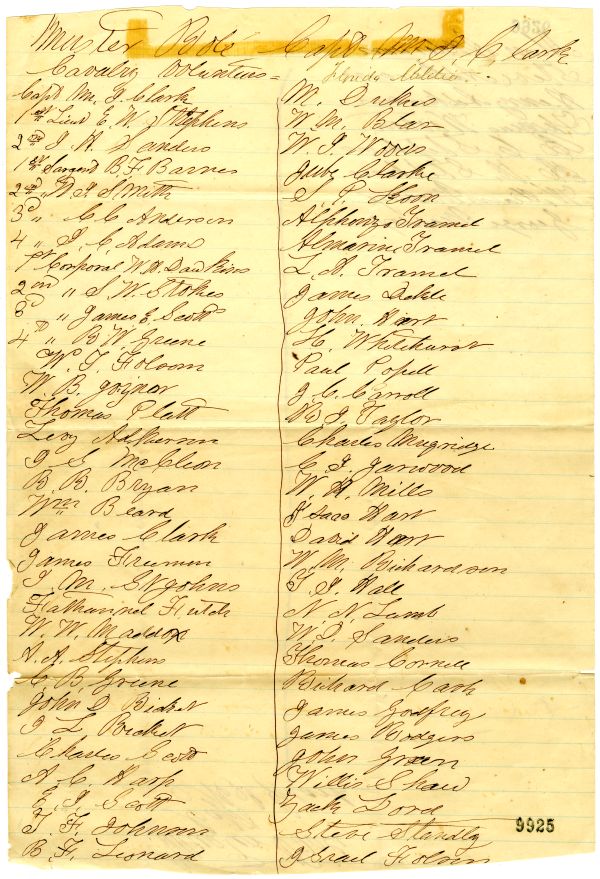 Muster Role Capt Wm J. Clark
Cavalry Volunteers =
Florida Militia
Capt Wm. J. Clark
1st Lieut E. W. J Stephens
2nd J. H. Sanders
1st Sargent B. F. Barnes
2nd " D. J. Smith
3d " C C Anderson
4 " J. C. Adams
1st Corporal W. H. Dawkins
2nd " S. W. Stokes
3d " James E. Scott
4th " B. W. Greene
W. J. Holoom
W. B. Joyner
Thomas Platt
Levy
J. S. McCleon
B. B. Bryan
Wm Beard
James Clark
James Frumen
J. M. St Johns
Nathaniel
W. W. Maddox
A. A. Stephens
C. B. Greene
John D Bicket
J L Bricket
Charles Scott
A. C. Harp
E. J. Scott
J. F. Johnson
B. F. Leonard
M. Dukes
W. M. Blar
W. J. Woods
Jube Clarke
Alphonzo Tramel
Almarine Tramel
L. A. Tramel
James Dekle
John Hart
H. Whitehurst
Paul Popell
J. C. Carroll
R J Taylor
Charles Mugridge
C. J. Garwood
W. H. Mills
Isaac Hart
David Hart
W. M. Richardson
T. J. Hall
N. N. Lamb
W. J. Sanders
Thomas Cornell
Richard Cash
James Godfrey
James Rodgers
John Green
Willis Shaw
Zack Lord
Steve Standly
Israel Holom
9925